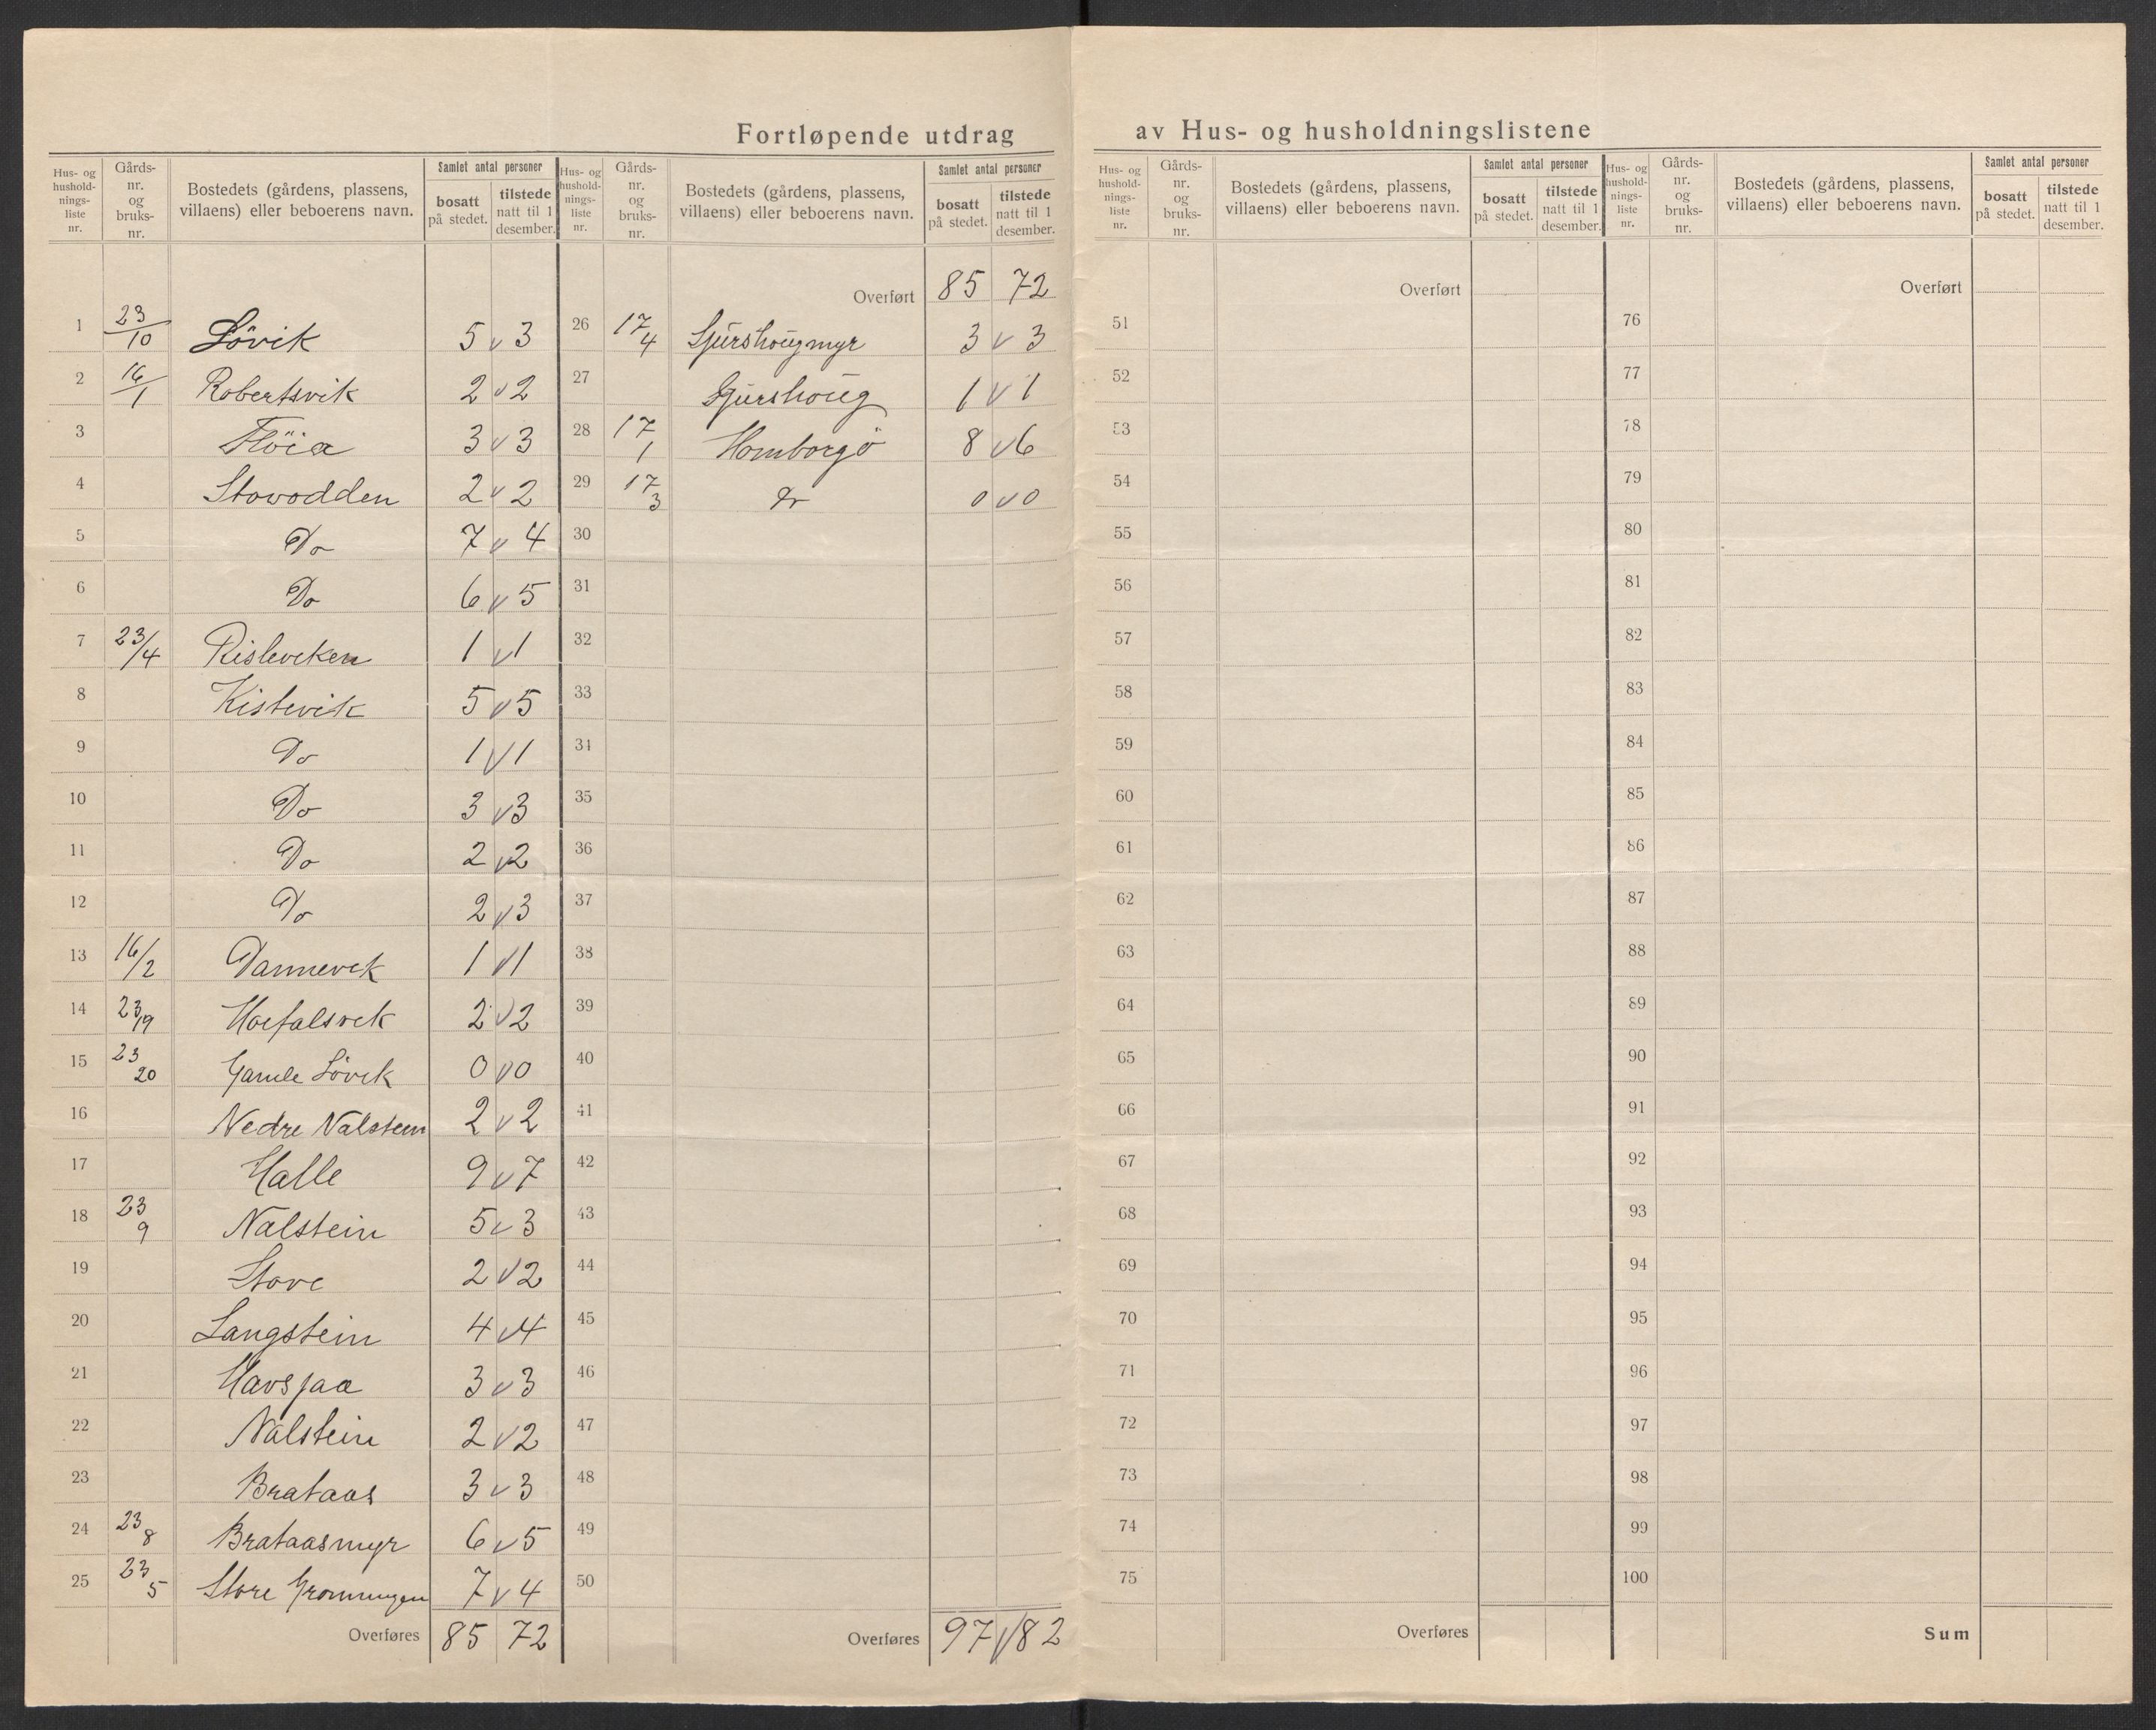 Fortløpende utdrag av Hus- og husholdningslistene
Hus- og husholdnings-liste nr. | Gårds-nr. og bruks-nr. | Bostedets (gårdens, plassens, villaens) eller beboerens navn. | Samlet antal personer bosatt på stedet. | tilstede natt til 1 desember.
1 23/10 Lövik 5 v 3
2 16/1 Robertsvik 2 v 2
3 Flöia 3 v 3
4 Stovodden 2 v 2
5 Do 7 v 4
6 Do 6 v 5
7 23/4 1 v 1
8 Kistevik 5 v 5
9 Do 1 v 1
10 Do 3 v 3
11 Do 2 v 2
12 Do 2 v 3
13 16/2 Dannevik 1 v 1
14 23/19 2 v 2
15 23 20 Gamle Lövik 0 v 0
16 Nedre Nalstein 2 v 2
17 Halle 9 v 7
18 23 9 Nalstein 5 v 3
19 Stove 2 v 2
20 Langstein 4 v 4
21 Havsjaa 3 v 3
22 Nalstein 2 v 2
23 Brataas 3 v 3
24 23 8 Brataasmyr 6 v 5
25 23 5 Store Gronningen 7 v 4
Overføres 85 72
Hus- og husholdnings-liste nr. | Gårds-nr. og bruks-nr. | Bostedets (gårdens, plassens, villaens) eller beboerens navn. | Samlet antal personer bosatt på stedet. | tilstede natt til 1 desember.
Overført 85 72
26 17/4 Gjurshougmyr 3 v 3
27 Gjurshoug 1 v 1
28 17 1 Homborgö 8 v 6
29 17 3 Do 0 v 0
30
31
32
33
34
35
36
37
38
39
40
41
42
43
44
45
46
47
48
49
50
Overføres 97 v 82
Hus- og husholdnings-liste nr. | Gårds-nr. og bruks-nr. | Bostedets (gårdens, plassens, villaens) eller beboerens navn. | Samlet antal personer bosatt på stedet. | tilstede natt til 1 desember.
Overført
51
52
53
54
55
56
57
58
59
60
61
62
63
64
65
66
67
68
69
70
71
72
73
74
75
Overføres
Hus- og husholdnings-liste nr. | Gårds-nr. og bruks-nr. | Bostedets (gårdens, plassens, villaens) eller beboerens navn. | Samlet antal personer bosatt på stedet. | tilstede natt til 1 desember.
Overført
76
77
78
79
80
81
82
83
84
85
86
87
88
89
90
91
92
93
94
95
96
97
98
99
100
Sum